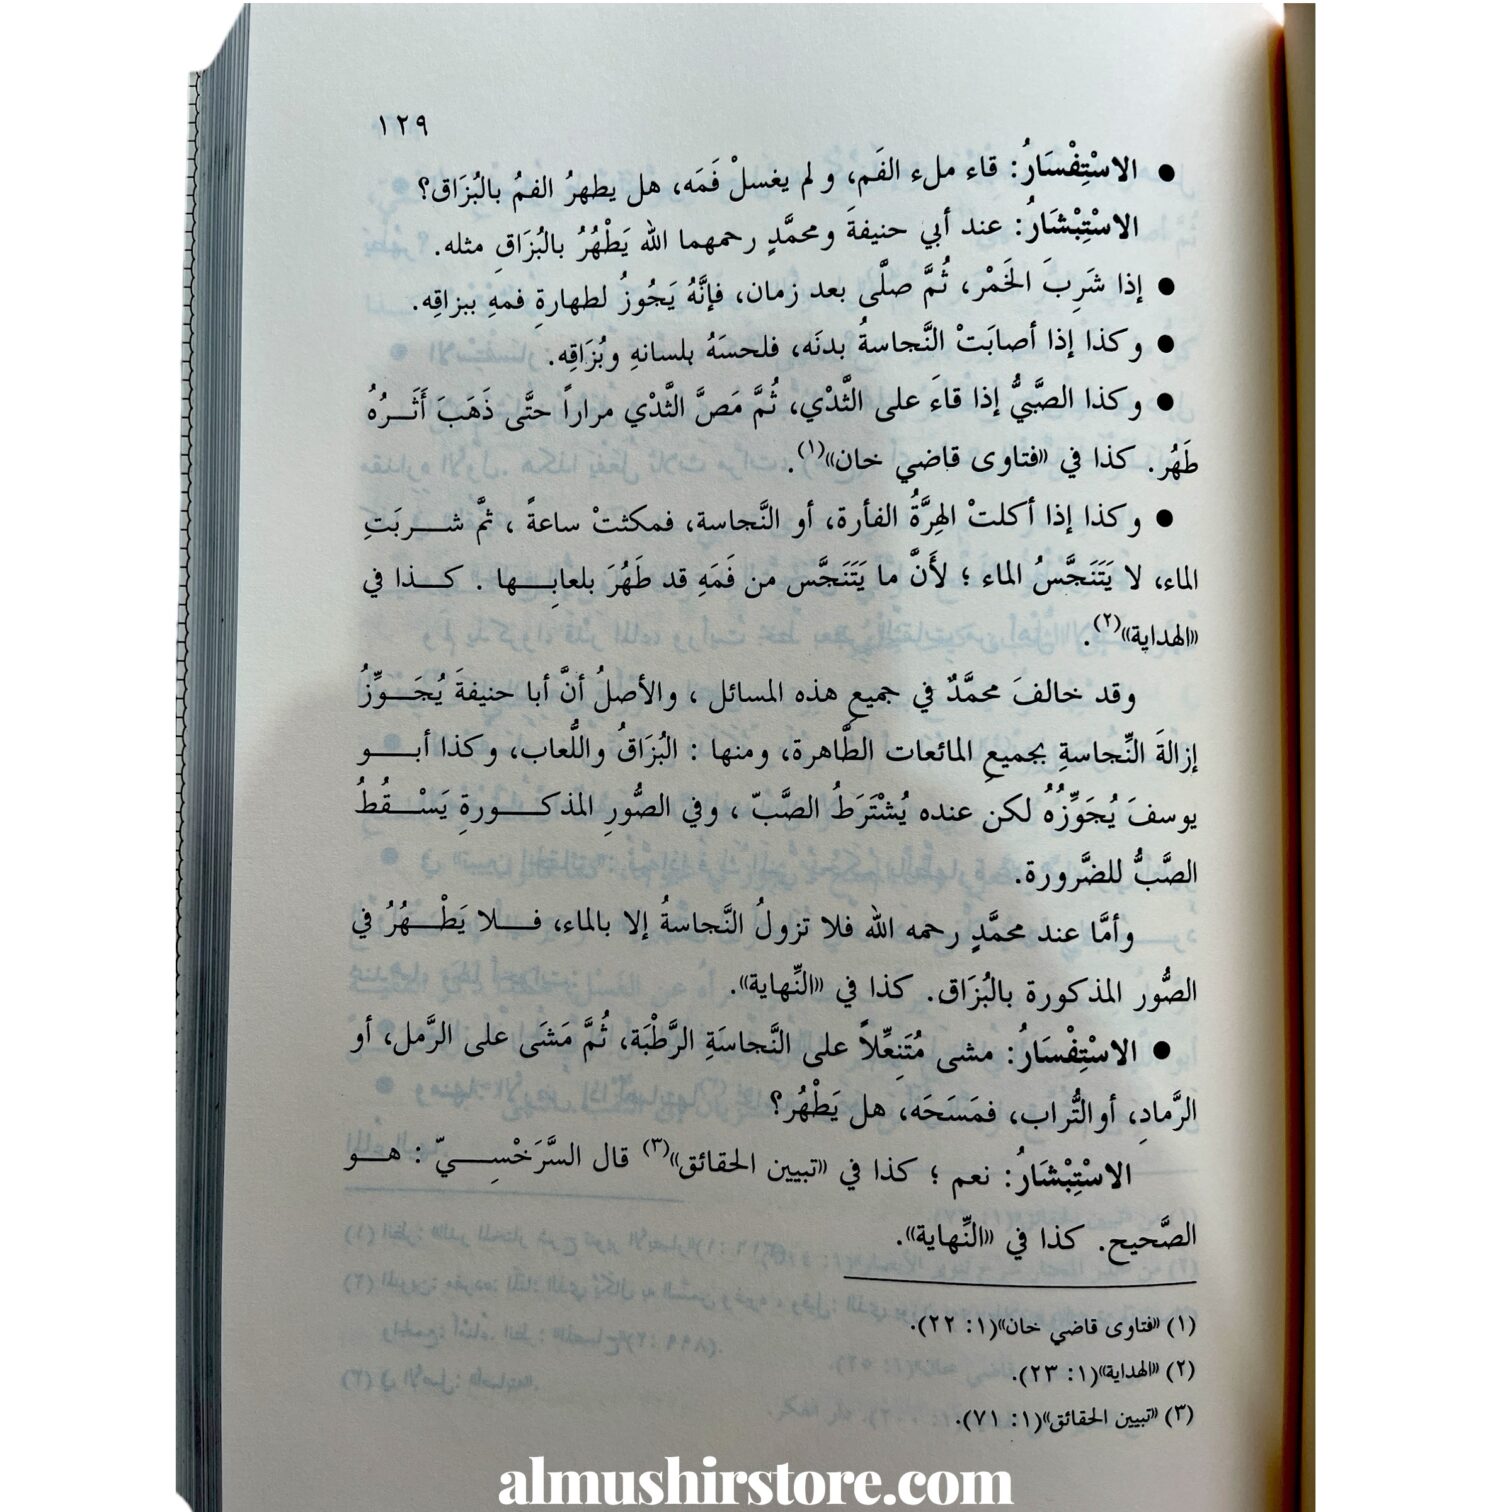 ١٢٩
● الاسْتِفْسَارُ: قاء ملء الفَم، و لم يغسلْ فَمَه، هل يطهرُ الفمُ بالبُزَاق؟
الاسْتِبْشَارُ: عند أبي حنيفةَ ومحمَّدٍ رحمهما الله يَطْهُرُ بالبُزَاقِ مثله.
● إذا شَرِبَ الخَمْر، ثُمَّ صلَّى بعد زمان، فإنَّهُ يَجُوزُ لطهارةِ فمهِ ببزاقِه.
● وكذا إذا أصابَتْ النَّجاسةُ بدنَه، فلحسَهُ بلسانهِ وبُزَاقِه.
● وكذا الصَّبيُّ إذا قاءَ على الثَّدْي، ثُمَّ مَصَّ الثَّدْي مراراً حتَّى ذَهَبَ أَثَرُهُ
طَهُر. كذا في «فتاوى قاضي خان»(١).
● وكذا إذا أكلتْ الهِرَّةُ الفأرة، أو النَّجاسة، فمكثتْ ساعةً ، ثمَّ شربَتِ
الماء، لا يَتَنَجَّسُ الماء ؛ لأَنَّ ما يَتَنَجَّس من فَمَهِ قد طَهُرَ بلعابِها . كذا في
«الهداية»(٢).
وقد خالفَ محمَّدٌ في جميع هذه المسائل ، والأصلُ أنَّ أبا حنيفةَ يُجَوِّزُ
إزالةَ النِّجاسةِ بجميعِ المائعات الطَّاهرة، ومنها : البُزَاقُ واللُّعاب، وكذا أبو
يوسفَ يُجَوِّزُهُ لكن عنده يُشْتَرَطُ الصَّبّ ، وفي الصُّورِ المذكورةِ يَسْقُطُ
الصَّبُّ للضَّرورة.
وأمَّا عند محمَّدٍ رحمه الله فلا تزولُ النَّجاسةُ إلا بالماء، فلا يَطْهُرُ في
الصُّور المذكورة بالبُزَاق. كذا في «النِّهاية».
● الاسْتِفْسَارُ: مشى مُتَنِعِّلاً على النَّجاسَةِ الرَّطْبَة، ثُمَّ مَشَى على الرَّمل، أو
الرَّمادِ، أو التُّراب، فمَسَحَه، هل يَطْهُر؟
الاسْتِبْشَارُ: نعم ؛ كذا في «تبيين الحقائق»(٣) قال السَّرَخْسِيّ : هو
الصَّحيح. كذا في «النِّهاية».
(١) «فتاوى قاضي خان»(١: ٢٢).
(٢) «الهداية»(١: ٢٣).
(٣) «تبيين الحقائق»(١: ٧١).
almushirstore.com